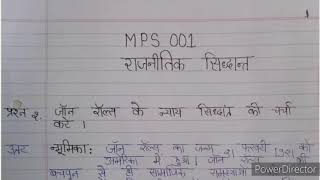 1
MPS 001
राजनीतिक सिद्धान्त
प्रश्न 2. जॉन रॉल्स के न्याय सिद्धांत की चर्चा
करें।
उत्तर भूमिका: जॉन रॉल्स का जन्म 21 फरवरी 1921 को
अमेरिका में हुआ। जॉन रॉल्स को
बचपन से ही सामाजिक समस्याओं
PowerDirector